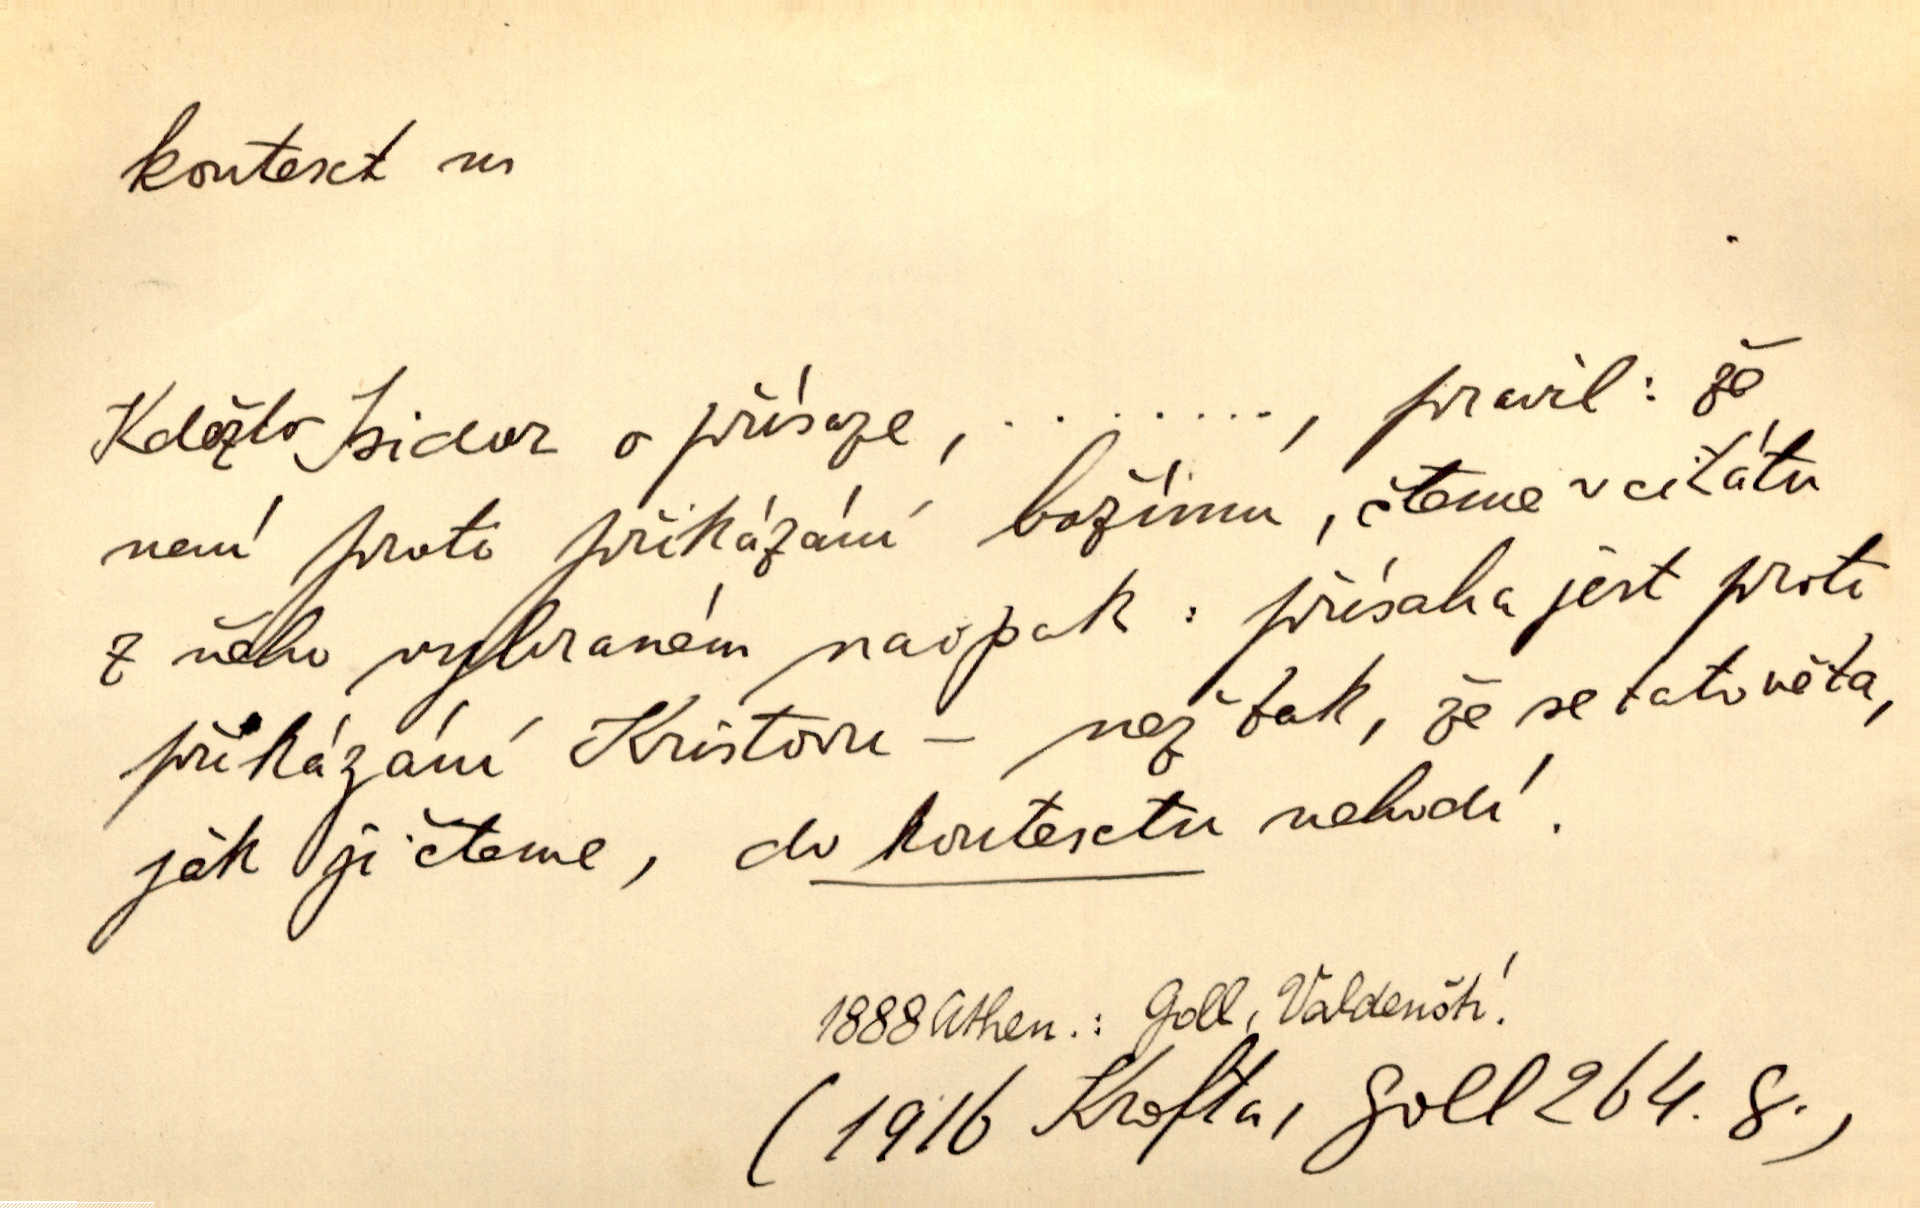 kontext m
Kdežto Isidor o přísaze, . . . . . . . . , pravil: že
není proti přikázání božímu, čteme v citátu
z něho vybraném naopak: přísaha jest proti
přikázání Kristovu – než tak, že se tato věta,
jak ji čteme, do kontextu nehodí.
1888 Athen.: Goll, Valdenští.
(1916 Krofta, Goll 264. G.)